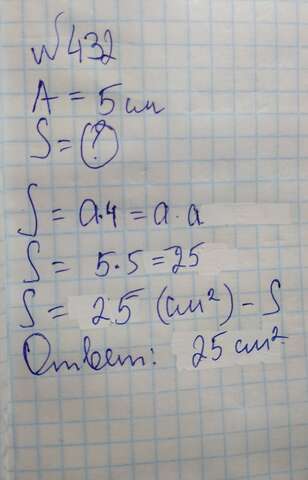 №432
A = 5 см
S = ?
S = a·4 = a·a
S = 5·5 = 25
S = 25 (см²) - S
Ответ: 25 см²